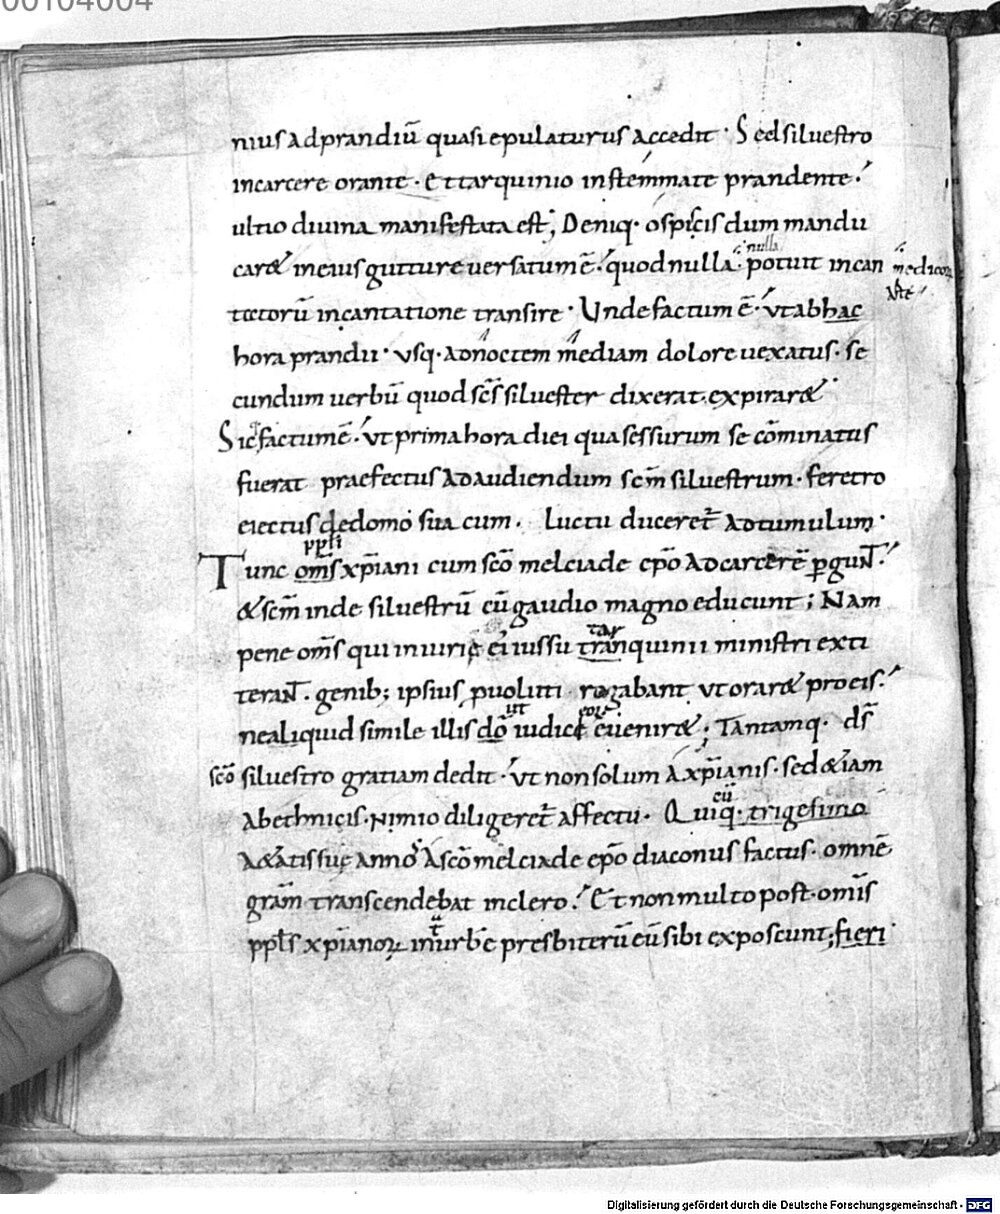 00104004
nius ad prandiū quasi epulaturus accedit · Sed siluestro
in carcere orante · Et tarquinio in stemmate prandente ·
ultio diuina manifestata est; Deniq· os piscis dum mandu
car& in eius gutture uersatum ē · quod nulla · potuit incan
nulla
medicorū
arte
tatorū incantatione transire · Unde factum ē · ut ab hac
hora prandii · usq· ad noctem mediam dolore uexatus · se
cundum uerbū quod scs̄ siluester dixerat · expirar& ·
Sic factum ē · ut prima hora diei qua sessurum se cōminatus
fuerat praefectus ad audiendum scm̄ siluestrum · feretro
eiectus de domo sua cum · luctu duceret̄ ad tumulum ·
ppli
Tunc om̄s xp̄iani cum scō melciade ep̄o ad carcerē ꝑgunt̄ ·
& scm̄ inde siluestrū cū gaudio magno educunt ; Nam
tar
pene om̄s qui in iurię ei iussu tranquinii ministri exti
terant̄ · genib; ipsius ꝓuoluti rogabant ut orar& pro eis ·
ne aliquid simile illis dō iudice euenir& ; Tantamq· ds̄
ut
scō siluestro gratiam dedit · ut non solum a xp̄ianis · sed & iam
ab ethnicis · nimio diligeret̄ affectu · Quiq· trigesimo
cū
a&atis suę anno a scō melciade ep̄o diaconus factus · omnē
gram̄ transcendebat in clero · Et non multo post · omis̄
ppls̄ xp̄ianoꝝ in urbe presbiterū eū sibi exposcunt ; fieri
Digitalisierung gefördert durch die Deutsche Forschungsgemeinschaft - DFG